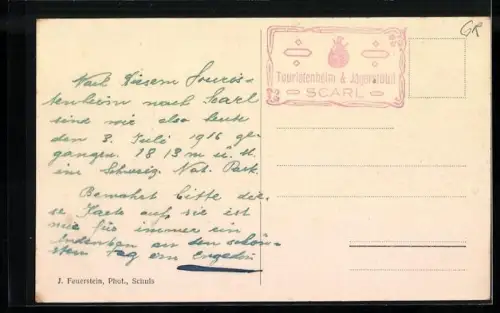 Nach diesem Touris-
tenheim nach Scarl
sind wir also heute
den 3. Juli 1916 ge-
gangen. 1813 m ü. M.
im Schweiz. Nat. Park.
Bewahrt bitte die-
se Karte auf, sie ist
mir für immer ein
Andenken an den schön-
sten Tag im Engadin
J. Feuerstein, Phot., Schuls
Touristenheim & Jägerstübli
SCARL
GR